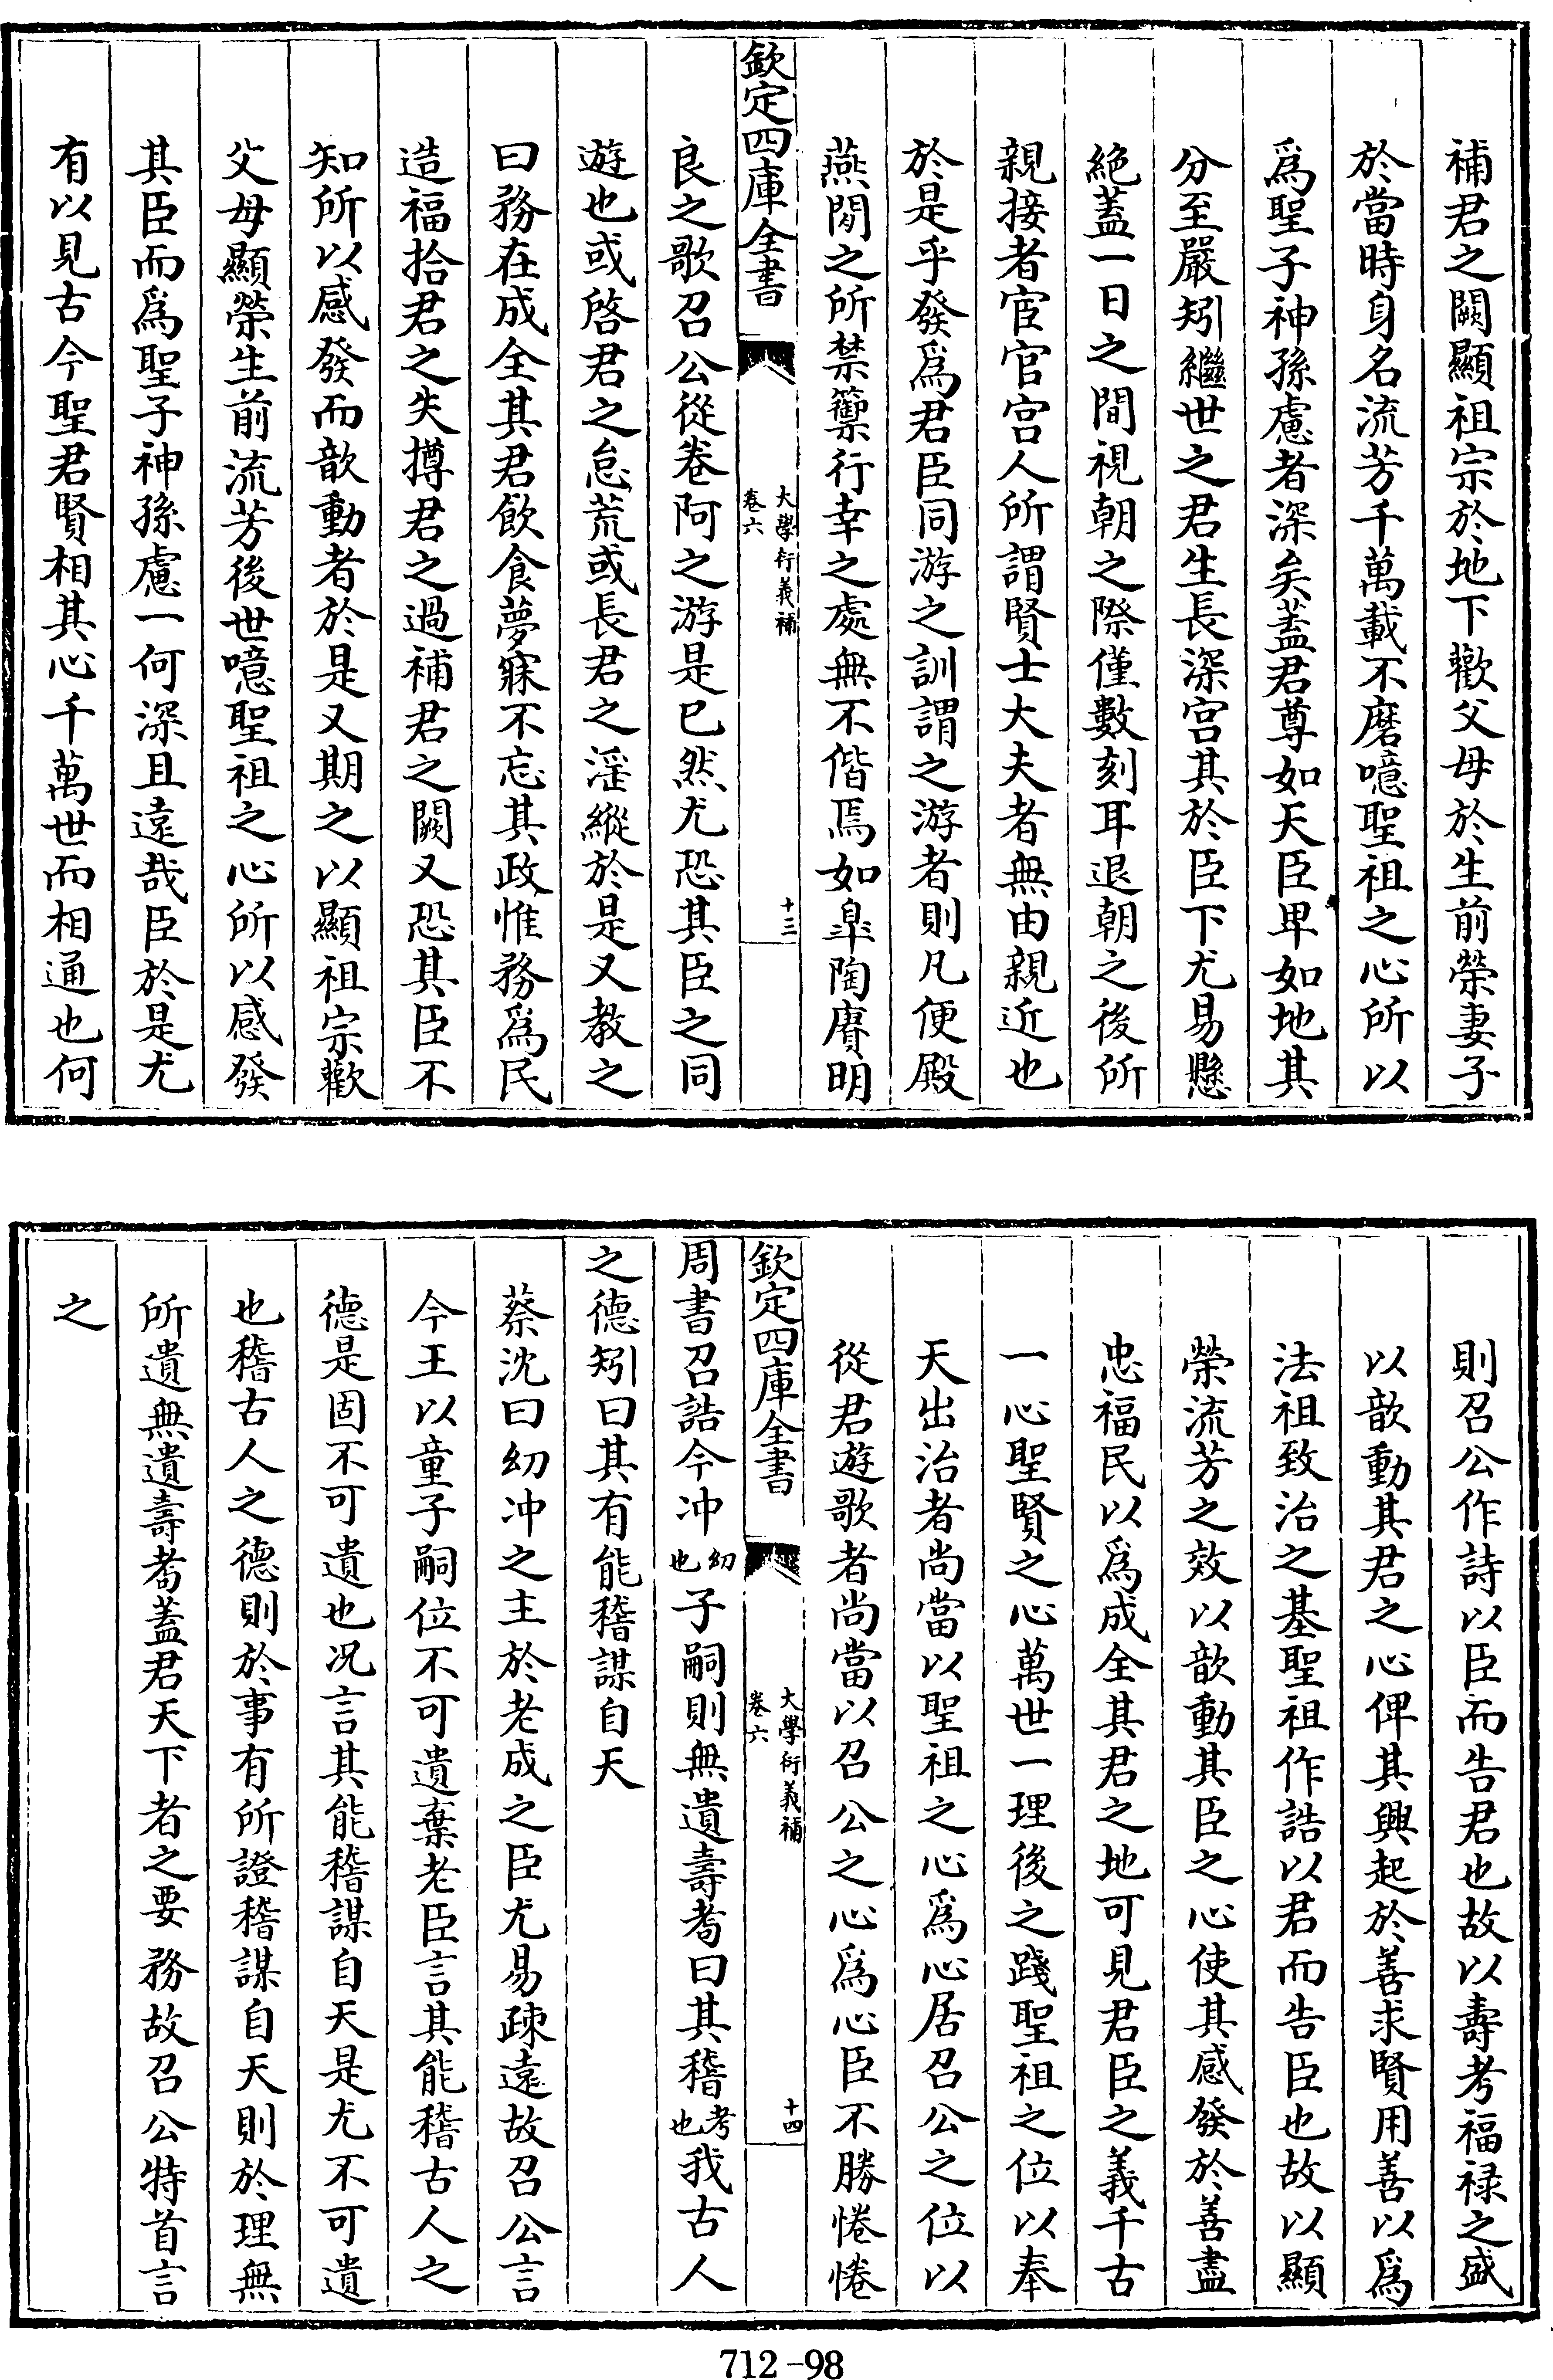 補君之闕顯祖宗於地下歡父母於生前榮妻子
於當時身名流芳千萬載不磨噫聖祖之心所以
爲聖子神孫慮者深矣蓋君尊如天臣卑如地其
分至嚴矧繼世之君生長深宫其於臣下尤易懸
絶蓋一日之間視朝之際僅數刻耳退朝之後所
親接者宦官宫人所謂賢士大夫者無由親近也
於是乎發爲君臣同游之訓謂之游者則凡便殿
燕閒之所禁籞行幸之處無不偕焉如臯陶賡明
欽定四庫全書
大學衍義補
卷六
十三
良之歌召公從卷阿之游是已然尤恐其臣之同
遊也或啓君之怠荒或長君之淫縱於是又教之
曰務在成全其君飲食夢寐不忘其政惟務爲民
造福拾君之失撙君之過補君之闕又恐其臣不
知所以感發而歆動者於是又期之以顯祖宗歡
父母顯榮生前流芳後世噫聖祖之心所以感發
其臣而爲聖子神孫慮一何深且遠哉臣於是尤
有以見古今聖君賢相其心千萬世而相通也何
則召公作詩以臣而告君也故以壽考福禄之盛
以歆動其君之心俾其興起於善求賢用善以爲
法祖致治之基聖祖作誥以君而告臣也故以顯
榮流芳之效以歆動其臣之心使其感發於善盡
忠福民以爲成全其君之地可見君臣之義千古
一心聖賢之心萬世一理後之踐聖祖之位以奉
天出治者尚當以聖祖之心爲心居召公之位以
從君遊歌者尚當以召公之心爲心臣不勝惓惓
欽定四庫全書
大學衍義補
卷六
十四
周書召誥今冲幼也子嗣則無遺壽耉曰其稽考也我古人
之德矧曰其有能稽謀自天
蔡沈曰幼冲之主於老成之臣尤易疎遠故召公言
今王以童子嗣位不可遺棄老臣言其能稽古人之
德是固不可遺也况言其能稽謀自天是尤不可遺
也稽古人之德則於事有所證稽謀自天則於理無
所遺無遺壽耉蓋君天下者之要務故召公特首言
之
712-98